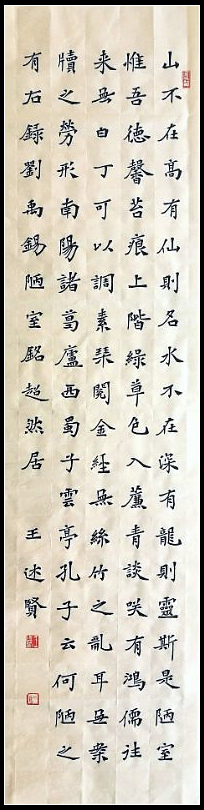 山不在高有仙則名水不在深有龍則靈斯是陋室
惟吾徳馨苔痕上階綠草色入簾青談咲有鴻儒往
来無白丁可以調素琴閱金經無絲竹之亂耳無案
牘之勞形南陽諸葛廬西蜀子雲亭孔子云何陋之
有右録劉禹錫陋室銘超然居 王述賢